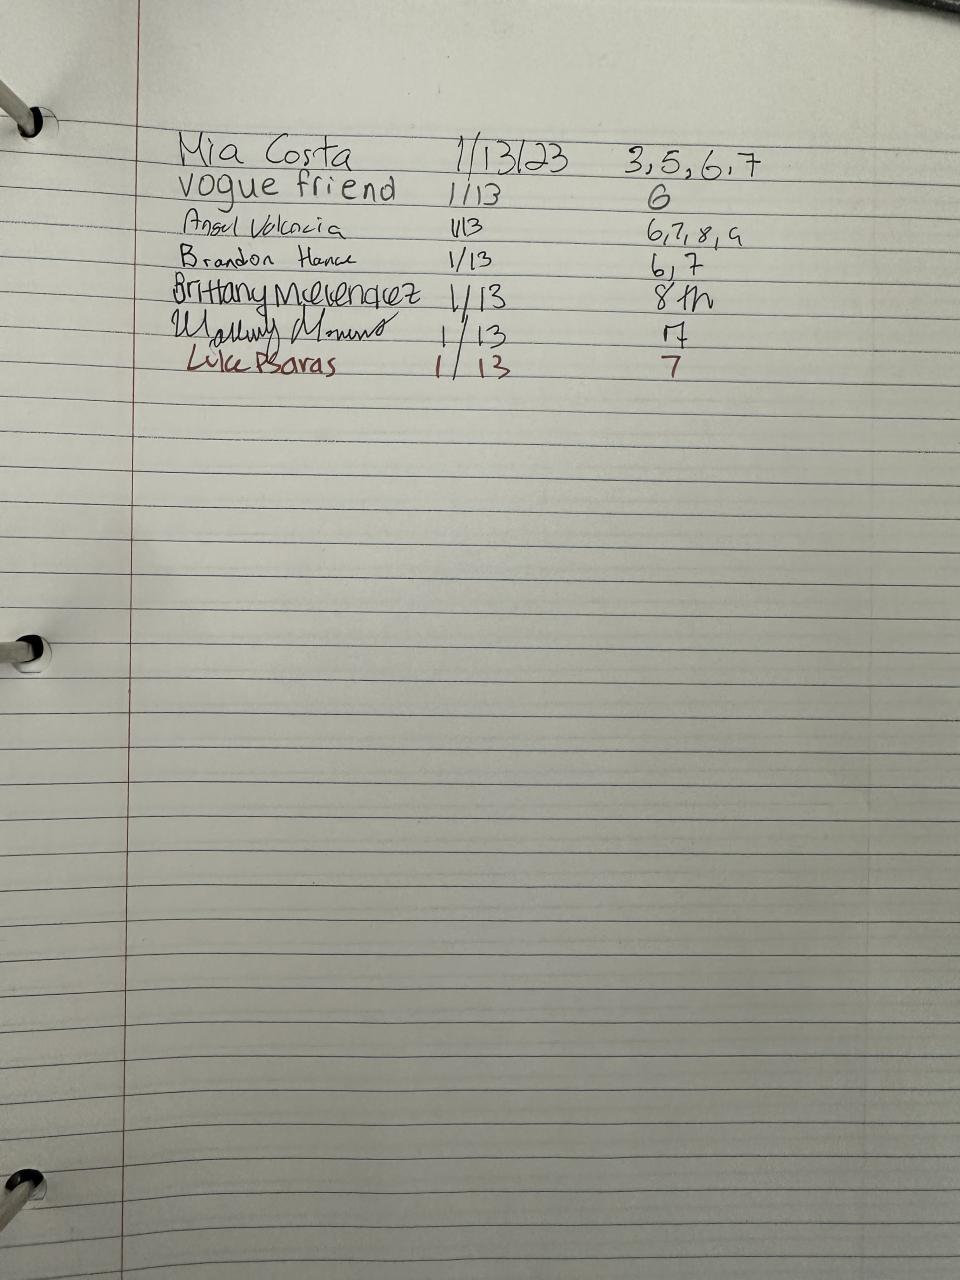 Mia Costa 1/13/23 3,5,6,7
vogue friend 1/13 6
Angel Valencia 1/13 6,7,8,9
Brandon Hance 1/13 6,7
Brittany Melendez 1/13 8th
1/13 7
Luke Psaras 1/13 7